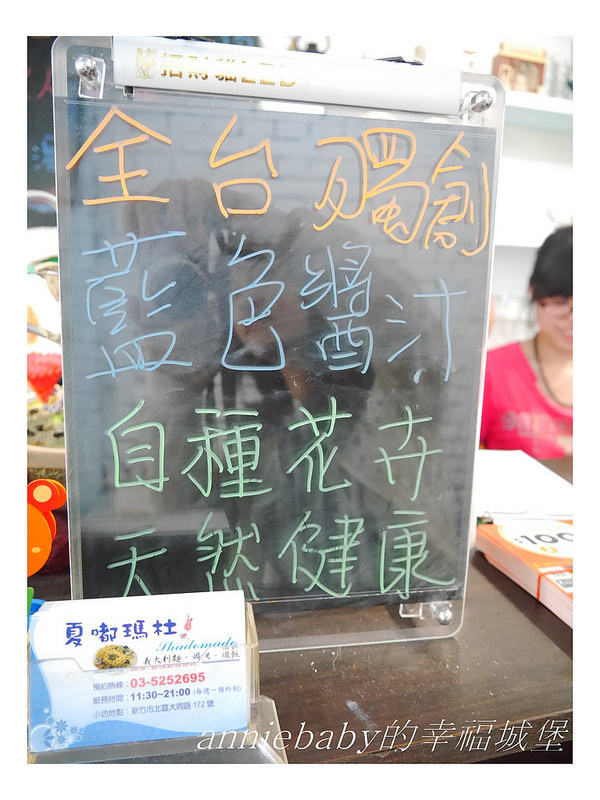 招財貓LED
全台獨創
藍色醬汁
自種花卉
天然健康
100
夏嘟瑪杜
Shadomado
義大利麵．焗烤．燉飯
預約熱線：03-5252695
服務時間：11:30~21:00 (每週一預約制)
小坊地點：新竹市北區大同路172號
anniebaby的幸福城堡